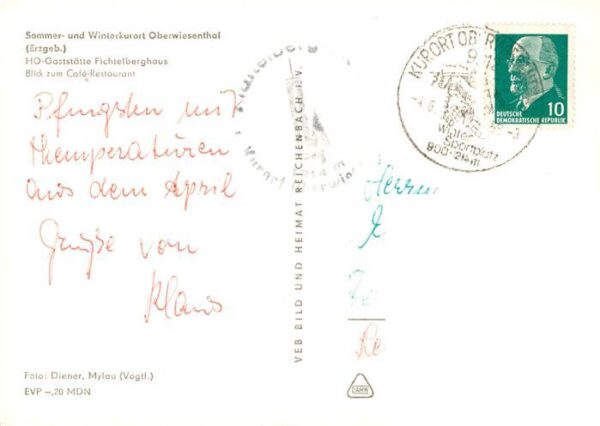 Sommer- und Winterkurort Oberwiesenthal
(Erzgeb.)
HO-Gaststätte Fichtelberghaus
Blick zum Café-Restaurant
Pfingsten mit
themperatüren
aus dem April
Grüße von
Klaus
Foto: Diener, Mylau (Vogtl.)
EVP -,20 MDN
VEB BILD UND HEIMAT REICHENBACH i. V.
Fichtelberg
1214 m
Kurort Oberwies
KURORT OBER
Sportplatz
900-1214m
10
DEUTSCHE
DEMOKRATISCHE REPUBLIK
Herrn